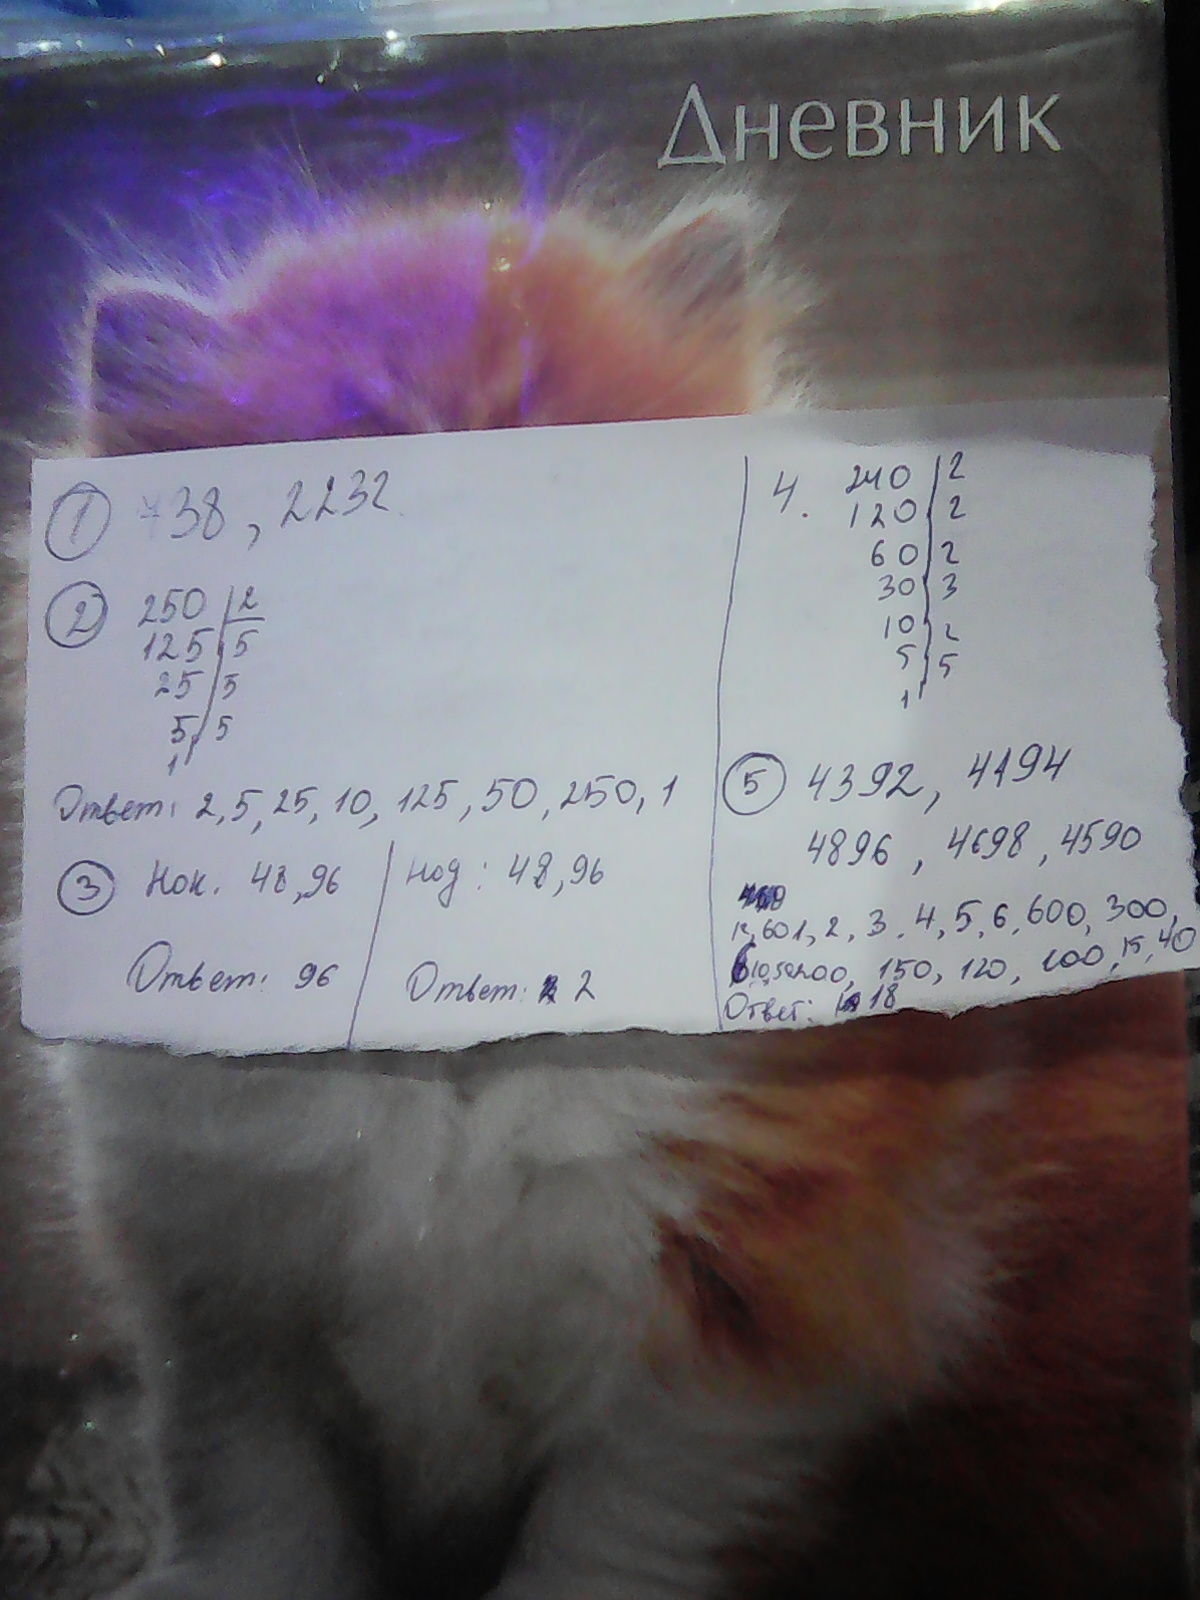 Дневник
1 738, 2232
2 250 | 2
125 | 5
25 | 5
5 | 5
1
Ответ: 2, 5, 25, 10, 125, 50, 250, 1
3 Нок. 48, 96
Ответ: 96
Нод: 48, 96
Ответ: 2
4. 240 | 2
120 | 2
60 | 2
30 | 3
10 | 2
5 | 5
1
5 4392, 4194
4896, 4698, 4590
12, 60 1, 2, 3, 4, 5, 6, 600, 300,
10, 50 200, 150, 120, 100, 15, 40
Ответ: 18